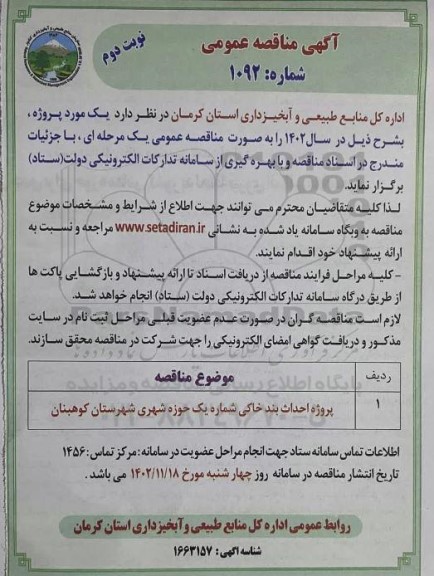 آگهی مناقصه عمومی
شماره: ۱۰۹۲
نوبت دوم
اداره کل منابع طبیعی و آبخیزداری استان کرمان در نظر دارد یک مورد پروژه ،
بشرح ذیل در سال۱۴۰۲ را به صورت مناقصه عمومی یک مرحله ای ، با جزئیات
مندرج در اسناد مناقصه و با بهره گیری از سامانه تدارکات الکترونیکی دولت(ستاد)
برگزار نماید.
لذا کلیه متقاضیان محترم می توانند جهت اطلاع از شرایط و مشخصات موضوع
مناقصه به وبگاه سامانه یاد شده به نشانی www.setadiran.ir مراجعه و نسبت به
ارائه پیشنهاد خود اقدام نمایند.
- کلیه مراحل فرایند مناقصه از دریافت اسناد تا ارائه پیشنهاد و بازگشایی پاکت ها
از طریق درگاه سامانه تدارکات الکترونیکی دولت (ستاد) انجام خواهد شد.
لازم است مناقصه گران در صورت عدم عضویت قبلی مراحل ثبت نام در سایت
مذکور و دریافت گواهی امضای الکترونیکی را جهت شرکت در مناقصه محقق سازند.
ردیف موضوع مناقصه
۱ پروژه احداث بند خاکی شماره یک حوزه شهری شهرستان کوهبنان
اطلاعات تماس سامانه ستاد جهت انجام مراحل عضویت در سامانه : مرکز تماس : ۱۴۵۶
تاریخ انتشار مناقصه در سامانه روز چهار شنبه مورخ ۱۴۰۲/۱۱/۱۸ می باشد .
روابط عمومی اداره کل منابع طبیعی و آبخیزداری استان کرمان
شناسه آگهی : ۱۶۶۳۱۵۷